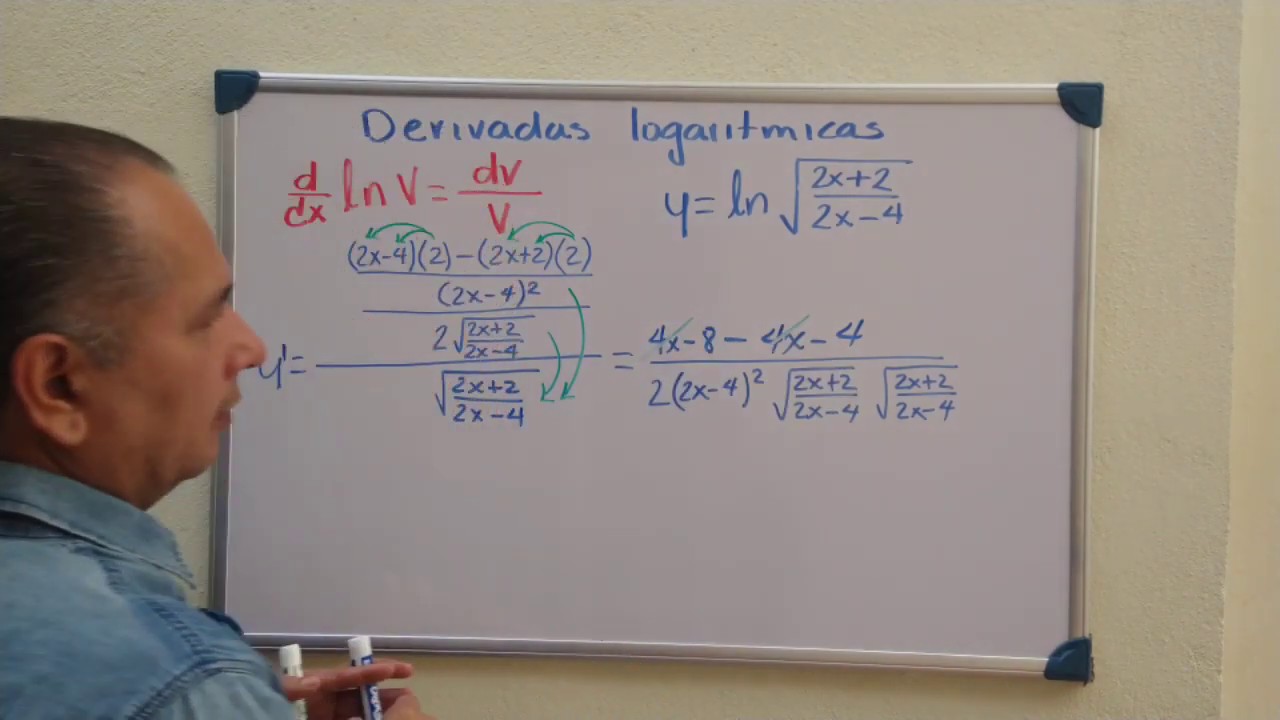 Derivadas logarítmicas
d/dx ln V = dV/V
y = ln √((2x+2)/(2x-4))
y' = (((2x-4)(2) - (2x+2)(2))/(2x-4)²)/(2√((2x+2)/(2x-4)))/√((2x+2)/(2x-4)) = (4x-8-4x-4)/(2(2x-4)² √((2x+2)/(2x-4)) √((2x+2)/(2x-4)))